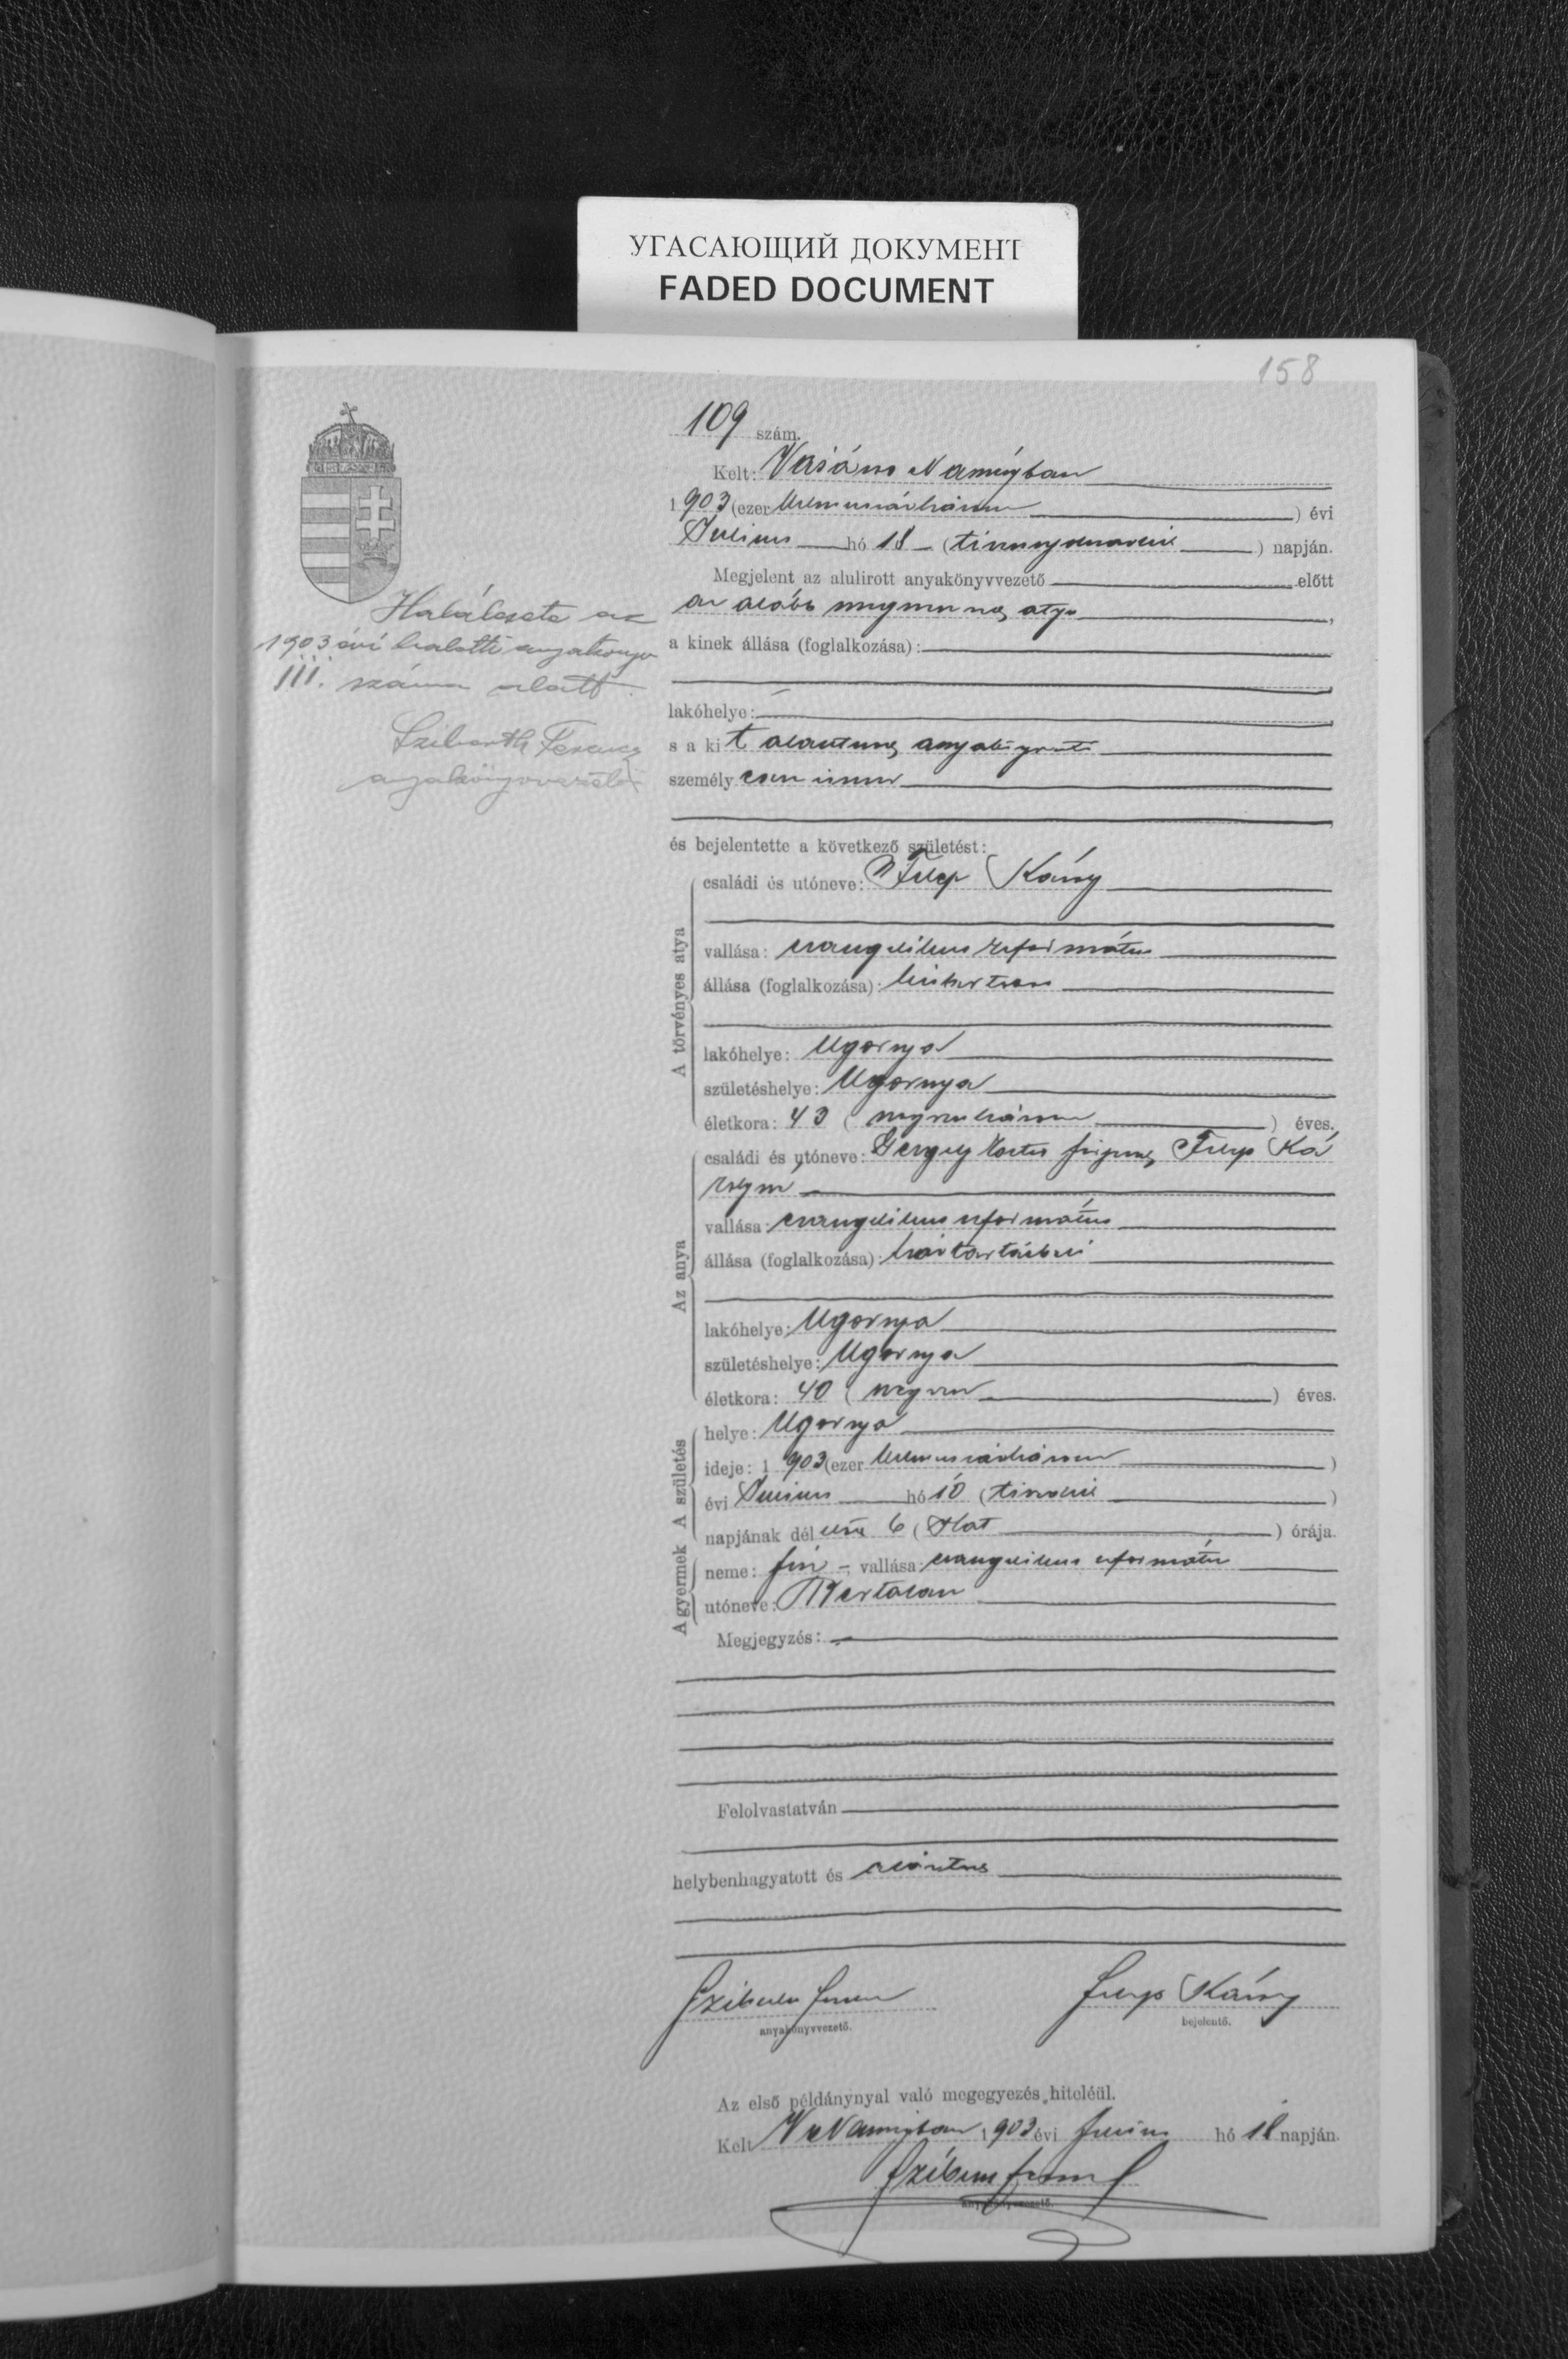 УГАСАЮЩИЙ ДОКУМЕНТ
FADED DOCUMENT
158
109 szám.
Kelt: Vásáros Naményban
1903 (ezer kilenczszázhárom) évi
Julius hó 18 (tizennyolczadik) napján.
Megjelent az alulirott anyakönyvvezető előtt
az alább megnevezett atya,
a kinek állása (foglalkozása):
lakóhelye:
s a kit alantirott anyakönyvvezető
személyesen ismer
és bejelentette a következő születést:
Halálesete az
1903 évi halotti anyakönyv
111. száma alatt.
Ferencz
anyakönyvvezető
A törvényes atya
családi és utóneve: Filep Károly
vallása: evangelikus református
állása (foglalkozása):
lakóhelye: Ugornya
születéshelye: Ugornya
életkora: 43 (negyvenhárom) éves.
Az anya
családi és utóneve: Gergely Filep Ká
rolyné
vallása: evangelikus református
állása (foglalkozása): háztartásbeli
lakóhelye: Ugornya
születéshelye: Ugornya
életkora: 40 (negyven) éves.
A születés
helye: Ugornya
ideje: 1903 (ezer kilenczszázhárom)
évi Julius hó 10 (tizedik)
napjának dél előtt 6 (Hat) órája.
A gyermek
neme: fiú vallása: evangelikus református
utóneve: Bertalan
Megjegyzés:
Felolvastatván
helybenhagyatott és aláiratott
anyakönyvvezető.
Filep Károly
bejelentő.
Az első példánynyal való megegyezés hiteléül.
Kelt V. Naményban 1903 évi Julius hó 18 napján.
anyakönyvvezető.